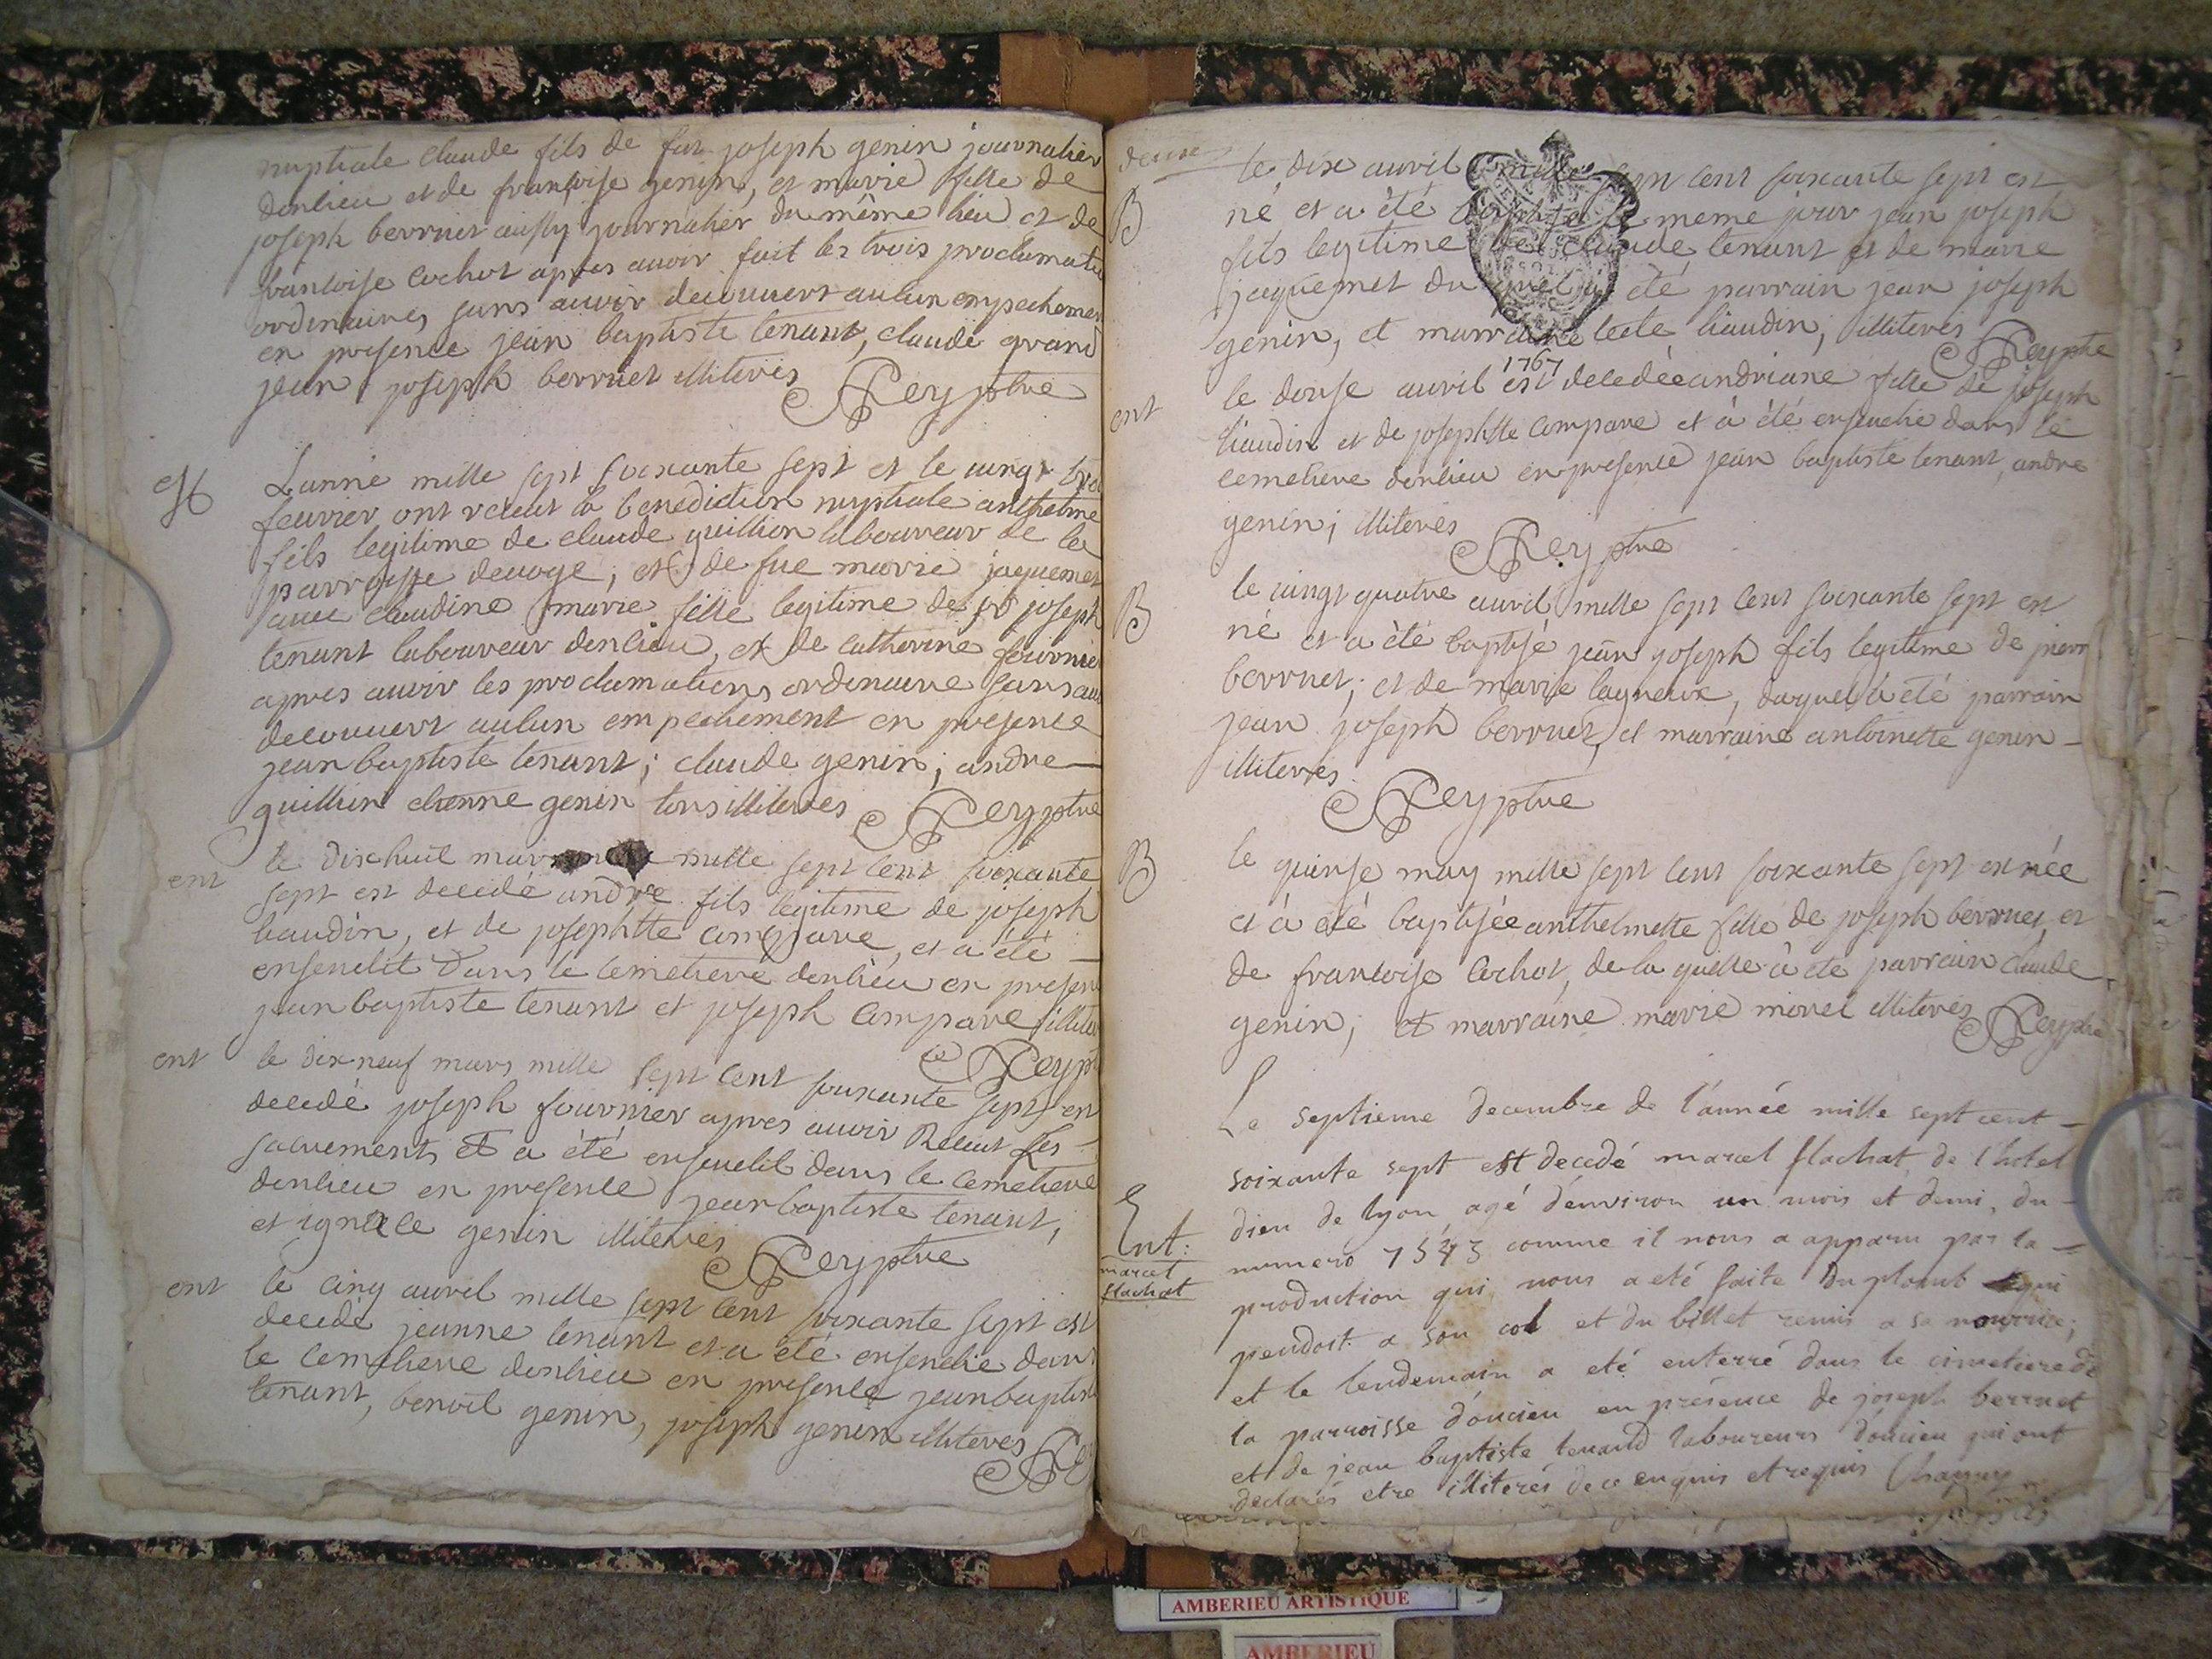 nuptiale claude fils de fut joseph genin journalier
donlieu et de francoise genin, et marie fille de
joseph berruet aussy journalier du même lieu et de
francoise cochot apres auoir fait les trois proclamatio
ordinaires sans auoir decouuert aucun empechemen
en presence jean baptiste tenant, claude grand
jean joseph berruet illiterés Rey ptre
M
L'anné mille sept soixante sept et le uingt troi
feurier ont recut la benediction nuptiale anthelme
fils legitime de claude guillion laboureur de la
parroisse deuoge, et de fue marie jaquemet
auec claudine marie fille legitime de joseph
tenant laboureur donlieu, et de catherine fournier
apres auoir les proclamations ordinaire sans auoi
decouuert aulun empechement en presence
jean baptiste tenant; claude genin; andre
guillion etienne genin tous illiteres Rey ptre
ent
le dixhuit mars mille sept cent soixante
sept est decedé andre fils legitime de joseph
liaudin, et de josephtte compare, et a été
enseuelit dans le cemetiere donlieu en presen
jean baptiste tenant et joseph compare illite
Rey pt
ent
le dixneuf mars mille sept cent souxante sept est
decedé joseph fournier apres auoir Recut les
sacrements et a été enseuelit dans le cemetiere
donlieu en presence jean baptiste tenant,
et ignace genin illiterés
Rey ptre
ent
le cinq auril mille sept cent soixante sept est
decedé jeanne tenant et a été enseuelie dans
le cemetiere donlieu en presence jean baptist
tenant, benoit genin, joseph genin illiteres
Re
deuxe
B
le dix auril mille sept cent soixante sept est
né et a été baptisé le meme jour jean joseph
fils legitime de claude tenant et de marie
jaquemet duquel a été parrain jean joseph
genin, et marraine liaudin, illiterés
Rey ptre
1767
ent
le douse auril est decedée andriane fille de joseph
liaudin et de josephtte compare et à été enseuelie dans le
cemetiere donlieu en presence jean baptiste tenant, andre
genin; illiterés
Rey ptre
B
le uingt quatre auril mille sept cent soixante sept est
né et a été baptisé jean joseph fils legitime de pierr
berruet; et de marie lagneux, duquel à été parrain
jean joseph berruet, et marraine antoinette genin
illiterés
Rey ptre
B
le quinse may mille sept cent soixante sept est née
et à été baptisée anthelmette fille de joseph berruet et
de francoise cochot, de la quelle à été parrain claude
genin; et marraine marie morel illiterés Rey ptre
Ent:
marcel
flachat
Le septieme decembre de l'année mille sept cent
soixante sept est decedé marcel flachat de l'hotel
dieu de lyon, agé d'environ un mois et demi, du
numero 7543 comme il nous a apparu par la
production qui nous a eté faite du plomb qui
pendoit a son col et du billet remis a sa nourrice;
et le lendemain a eté enterré dans le cimetiere de
la parroisse d'oncieu en présence de joseph berruet
et de jean baptiste tenand laboureurs d'oncieu qui ont
declarés etre illiterés de ce enquis et requis
AMBERIEU ARTISTIQUE
AMBERIEU